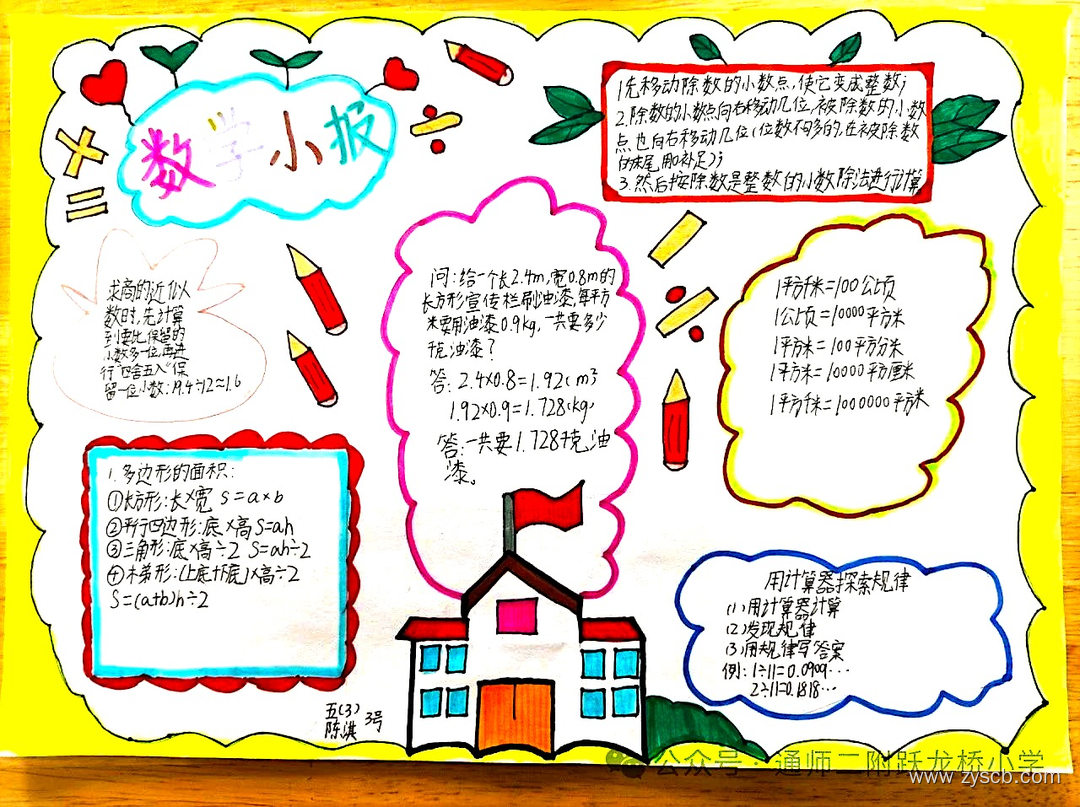 数学小报
1.先移动除数的小数点,使它变成整数;
2.除数的小数点向右移动几位,被除数的小数
点也向右移动几位(位数不够的,在被除数
的末尾用0补足);
3.然后按除数是整数的小数除法进行计算
求商的近似
数时,先计算
到要比保留的
小数多一位,再进
行"四舍五入"保
留一位小数:19.4÷12≈1.6
问:给一个长2.4m,宽0.8m的
长方形宣传栏刷油漆,每平方
米要用油漆0.9kg,一共要多少
千克油漆?
答:2.4×0.8=1.92(m3
1.92×0.9=1.728(kg)
答:一共要1.728千克油
漆。
1平方千米=100公顷
1公顷=10000平方米
1平方米=100平方分米
1平方米=10000平方厘米
1平方千米=1000000平方米
1.多边形的面积:
①长方形:长×宽 S=a×b
②平行四边形:底×高S=ah
③三角形:底×高÷2 S=ah÷2
④梯形:(上底+下底)×高÷2
S=(a+b)h÷2
用计算器探索规律
(1)用计算器计算
(2)发现规律
(3)用规律写答案
例:1÷11=0.0909…
2÷11=0.1818…
五(3)
陈淇 3号
公众号·通师二附跃龙桥小学
www.zyscb.com